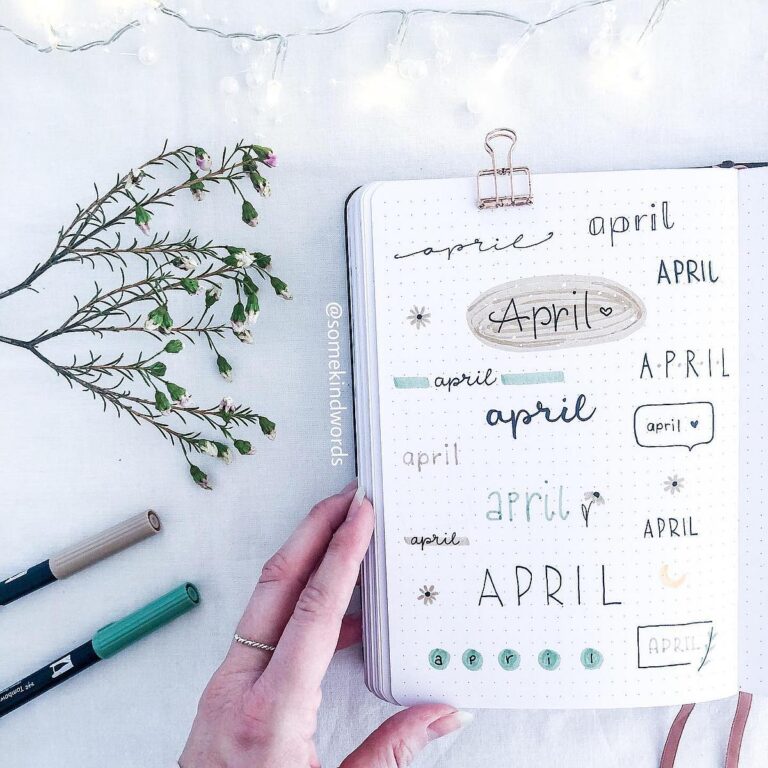 april
april
APRIL
April
A·P·R·I·L
april
april
april
april
april
april
APRIL
APRIL
april
APRIL
@somekindwords
Tombow